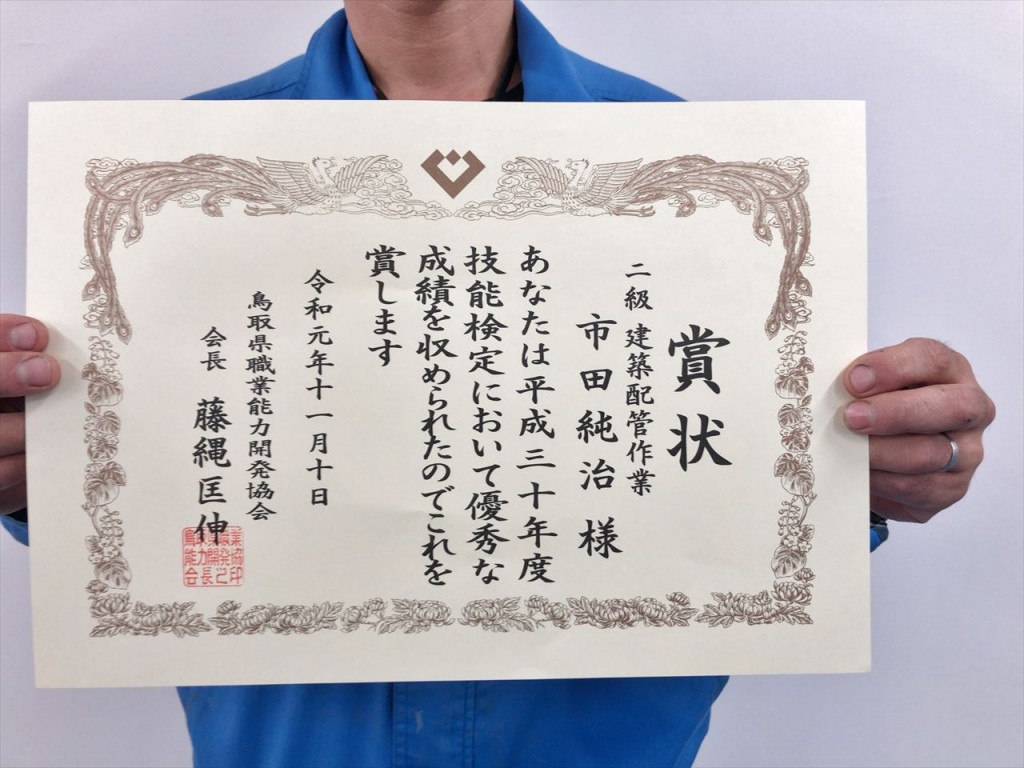 賞状
二級 建築配管作業
市田純治 様
あなたは平成三十年度
技能検定において優秀な
成績を収められたのでこれを
賞します
令和元年十一月十日
鳥取県職業能力開発協会
会長 藤縄匡伸